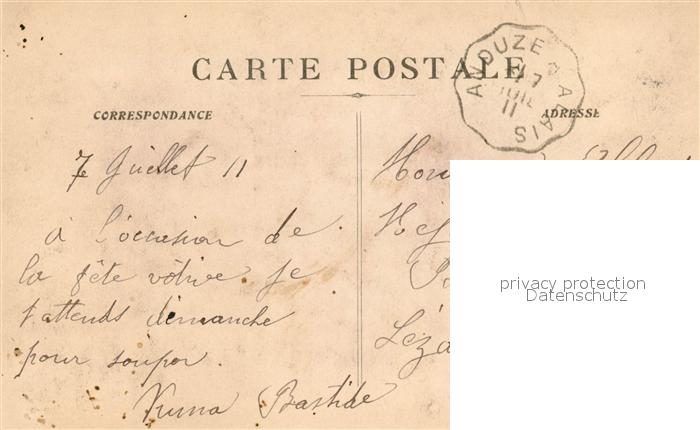 CARTE POSTALE
CORRESPONDANCE
ADRESSE
ANDUZE A ALAIS
7
JUIL
11
7 Juillet 11
à l'occasion de
la fête vôtive je
t'attends dimanche
pour souper.
Bastide
privacy protection
Datenschutz